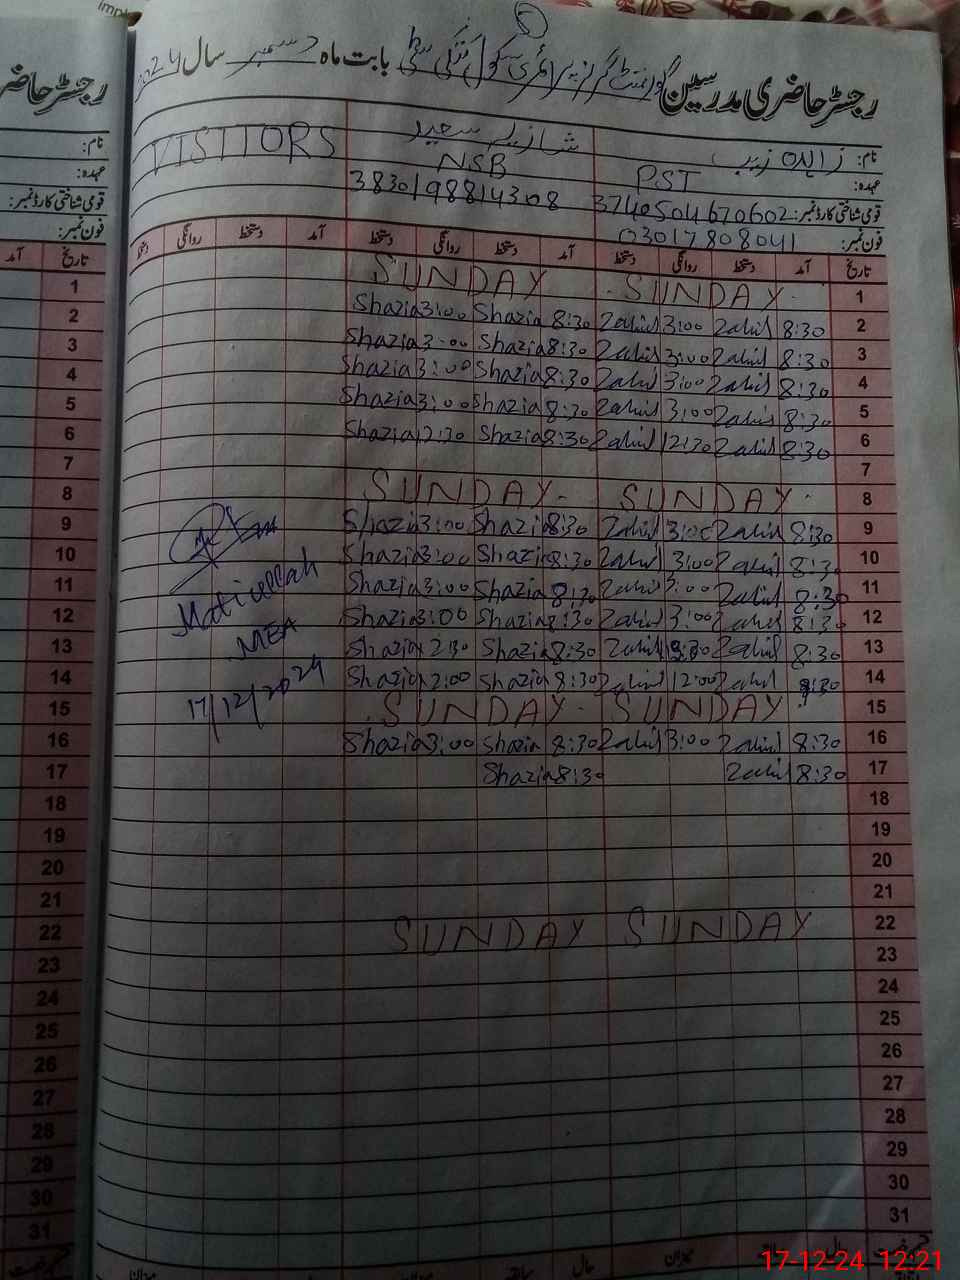 رجسٹر حاضری مدرسین گورنمنٹ گرلز پرائمری سکول بابت ماہ دسمبر سال 2024
نام: زاہدہ زیب شازیہ سعید VISITORS
عہدہ: PST NSB
قومی شناختی کارڈ نمبر: 3740504670602 3830198814308
فون نمبر: 03017808041
تاریخ آمد دستخط روانگی دستخط آمد دستخط روانگی دستخط آمد دستخط روانگی دستخط
1 SUNDAY SUNDAY
2 8:30 Zahid 3:00 Zahid 8:30 Shazia 3:00 Shazia
3 8:30 Zahid 3:00 Zahid 8:30 Shazia 3:00 Shazia
4 8:30 Zahid 3:00 Zahid 8:30 Shazia 3:00 Shazia
5 8:30 Zahid 3:00 Zahid 8:30 Shazia 3:00 Shazia
6 8:30 Zahid 12:30 Zahid 8:30 Shazia 12:30 Shazia
7
8 SUNDAY SUNDAY
9 8:30 Zahid 3:00 Zahid 8:30 Shazia 3:00 Shazia
10 8:30 Zahid 3:00 Zahid 8:30 Shazia 3:00 Shazia
11 8:30 Zahid 3:00 Zahid 8:30 Shazia 3:00 Shazia
12 8:30 Zahid 3:00 Zahid 8:30 Shazia 3:00 Shazia
13 8:30 Zahid Zahid 8:30 Shazia 2:30 Shazia
14 8:30 Zahid 12:00 Zahid 8:30 Shazia 2:00 Shazia
15 SUNDAY SUNDAY
16 8:30 Zahid 3:00 Zahid 8:30 Shazia 3:00 Shazia
17 8:30 Zahid 8:30 Shazia
18
19
20
21
22 SUNDAY SUNDAY
23
24
25
26
27
28
29
30
31
Matiullah
MEA
17/12/2024
رجسٹر حاضر
نام:
عہدہ:
قومی شناختی کارڈ نمبر:
فون نمبر:
تاریخ آمد
1
2
3
4
5
6
7
8
9
10
11
12
13
14
15
16
17
18
19
20
21
22
23
24
25
26
27
28
29
30
31
17-12-24 12:21